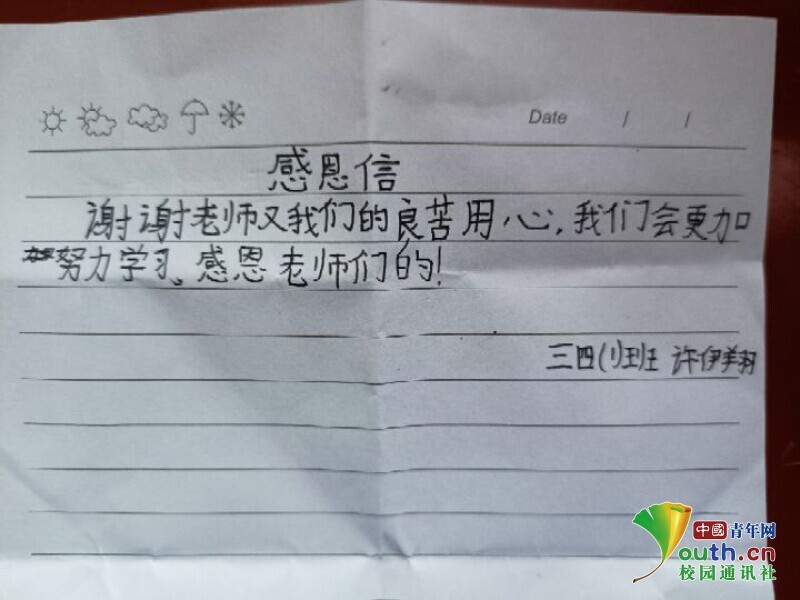 Date / /
感恩信
谢谢老师又我们的良苦用心,我们会更加
努力学习。感恩老师们的!
三四(1)班 许伊翔
中國青年网
youth.cn
校园通讯社